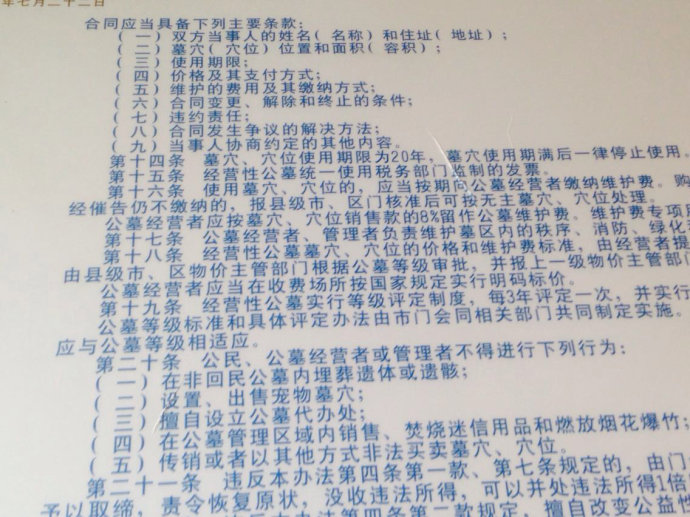 年七月二十二日
合同应当具备下列主要条款:
(一)双方当事人的姓名(名称)和住址(地址);
(二)墓穴(穴位)位置和面积(容积);
(三)使用期限;
(四)价格及其支付方式;
(五)维护的费用及其缴纳方式;
(六)合同变更、解除和终止的条件;
(七)违约责任;
(八)合同发生争议的解决方法;
(九)当事人协商约定的其他内容。
第十四条 墓穴、穴位使用期限为20年,墓穴使用期满后一律停止使用。
第十五条 经营性公墓统一使用税务部门监制的发票。
第十六条 使用墓穴、穴位的,应当按期向公墓经营者缴纳维护费。购
经催告仍不缴纳的,报县级市、区门核准后可按无主墓穴、穴位处理。
公墓经营者应按墓穴、穴位销售款的8%留作公墓维护费。维护费专项
第十七条 公墓经营者、管理者负责维护墓区内的秩序、消防、绿化
第十八条 经营性公墓墓穴、穴位的价格和维护费标准,由经营者提
由县级市、区物价主管部门根据公墓等级审批,并报上一级物价主管部门
公墓经营者应当在收费场所按国家规定实行明码标价。
第十九条 经营性公墓实行等级评定制度,每3年评定一次,并实行
公墓等级标准和具体评定办法由市门会同相关部门共同制定实施。
应与公墓等级相适应。
第二十条 公民、公墓经营者或管理者不得进行下列行为:
(一)在非回民公墓内埋葬遗体或遗骸;
(二)设置、出售宠物墓穴;
(三)擅自设立公墓代办处;
(四)在公墓管理区域内销售、焚烧迷信用品和燃放烟花爆竹;
(五)传销或者以其他方式非法买卖墓穴、穴位。
第二十一条 违反本办法第四条第一款、第七条规定的,由门
予以取缔,责令恢复原状,没收违法所得,可以并处违法所得1倍
本办法第四条第二款规定,擅自改变公益性